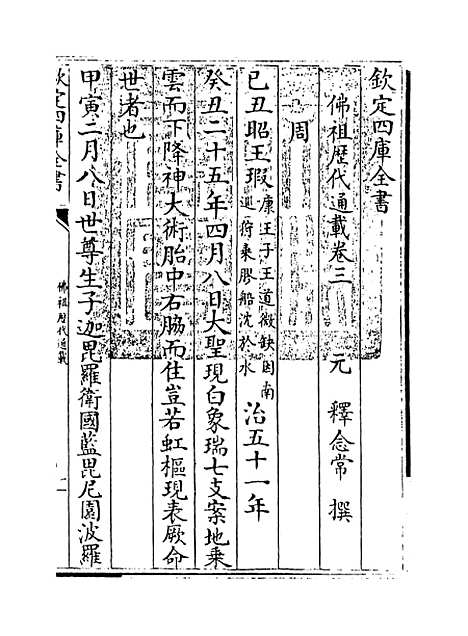 欽定四庫全書
佛祖歷代通載卷三
元 釋念常 撰
周
己丑昭王瑕康王子王道微缺因南廵狩乗膠船沈於水 治五十一年
癸丑二十五年四月八日大聖現白象瑞七支案地乗
雲而下降神大術胎中右脇而住豈若虹樞現表厥命
世者也
甲寅二月八日世尊生于迦毘羅衛國藍毘尼園波羅
欽定四庫全書
佛祖歷代通載